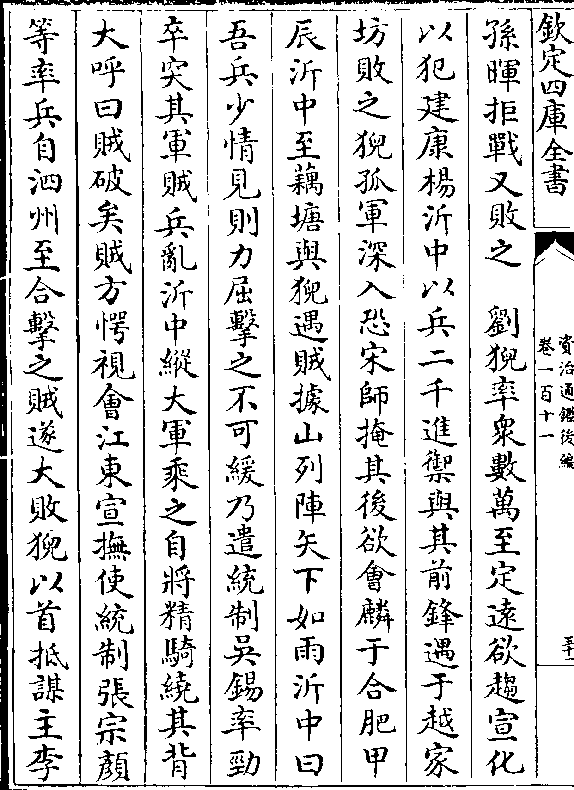 欽定四庫全書
資治通鑑後編
卷一百十一
五十一
孫暉拒戰又敗之　劉猊率衆數萬至定遠欲趨宣化
以犯建康楊沂中以兵二千進禦與其前鋒遇于越家
坊敗之猊孤軍深入恐宋師掩其後欲會麟于合肥甲
辰沂中至藕塘與猊遇賊據山列陣矢下如雨沂中曰
吾兵少情見則力屈擊之不可緩乃遣統制吳錫率勁
卒突其軍賊兵亂沂中縱大軍乘之自將精騎繞其背
大呼曰賊破矣賊方愕視會江東宣撫使統制張宗顏
等率兵自泗州至合擊之賊遂大敗猊以首抵謀主李